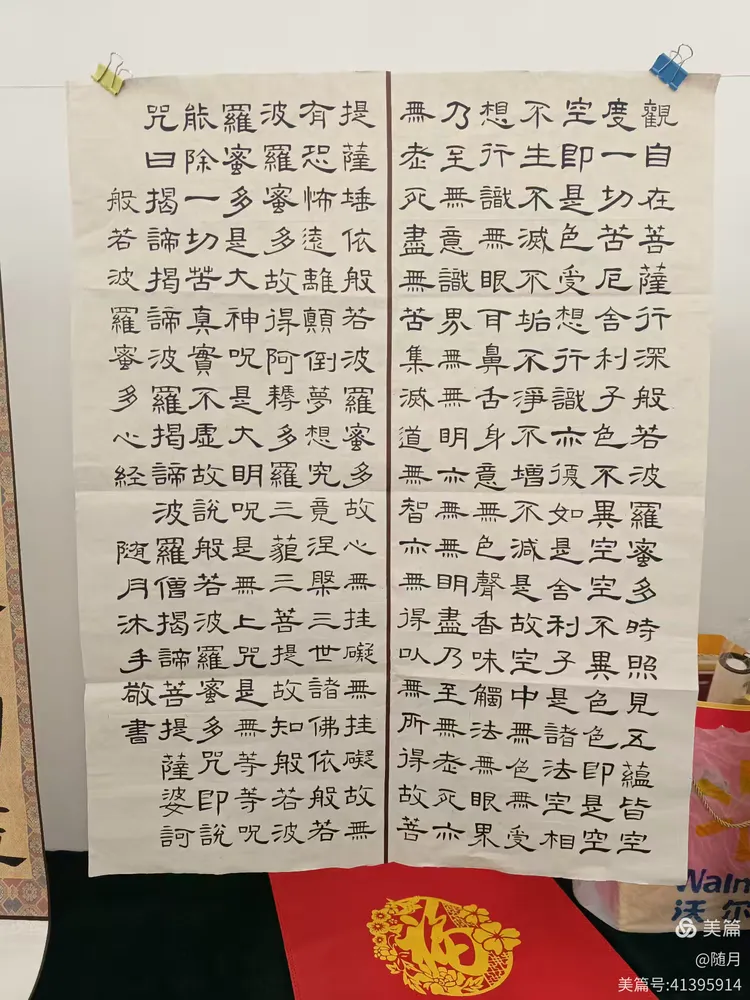 觀自在菩薩行深般若波羅蜜多時照見五蘊皆空
度一切苦厄舍利子色不異空空不異色色即是空
空即是色受想行識亦復如是舍利子是諸法空相
不生不滅不垢不淨不增不減是故空中無色無受
想行識無眼耳鼻舌身意無色聲香味觸法無眼界
乃至無意識界無無明亦無無明盡乃至無老死亦
無老死盡無苦集滅道無智亦無得以無所得故菩
提薩埵依般若波羅蜜多故心無挂礙無挂礙故無
有恐怖遠離顛倒夢想究竟涅槃三世諸佛依般若
波羅蜜多故得阿耨多羅三藐三菩提故知般若波
羅蜜多是大神呪是大明呪是無上咒是無等等呪
能除一切苦真實不虛故說般若波羅蜜多咒即說
咒曰揭諦揭諦波羅揭諦波羅僧揭諦菩提薩婆訶
般若波羅蜜多心経 随月沐手敬書
福
沃尔
美篇
@随月
美篇号:41395914